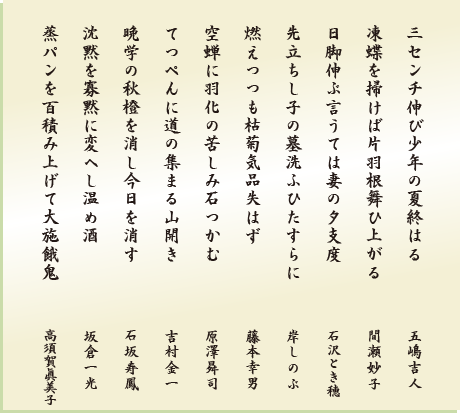 三センチ伸び少年の夏終はる 五嶋吉人
凍蝶を掃けば片羽根舞ひ上がる 間瀬妙子
日脚伸ぶ言うては妻の夕支度 石沢とき穂
先立ちし子の墓洗ふひたすらに 岸しのぶ
燃えつつも枯菊気品失はず 藤本幸男
空蝉に羽化の苦しみ石つかむ 原澤昇司
てっぺんに道の集まる山開き 吉村金一
晩学の秋橙を消し今日を消す 石坂寿鳳
沈黙を寡黙に変へし温め酒 坂倉一光
蒸パンを百積み上げて大施餓鬼 高須賀眞美子